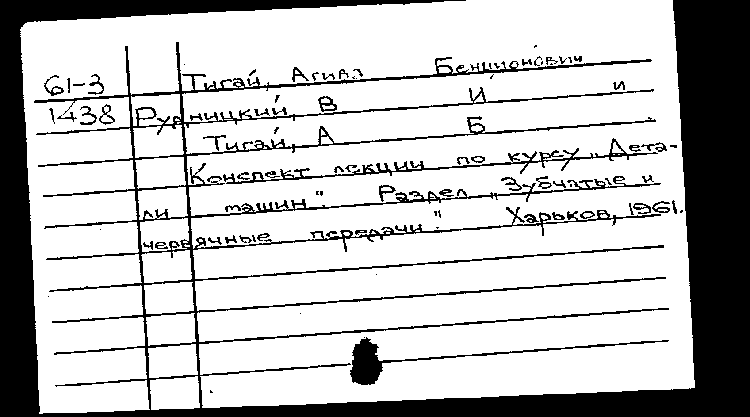 61-3 Тигай, Агивз Бенционович
1438 Рудницкий, В И и
Тигай, А Б.
Конспект лекции по курсу „Дета-
ли машин". Раздел „Зубчатые и
червячные передачи". Харьков, 1961.